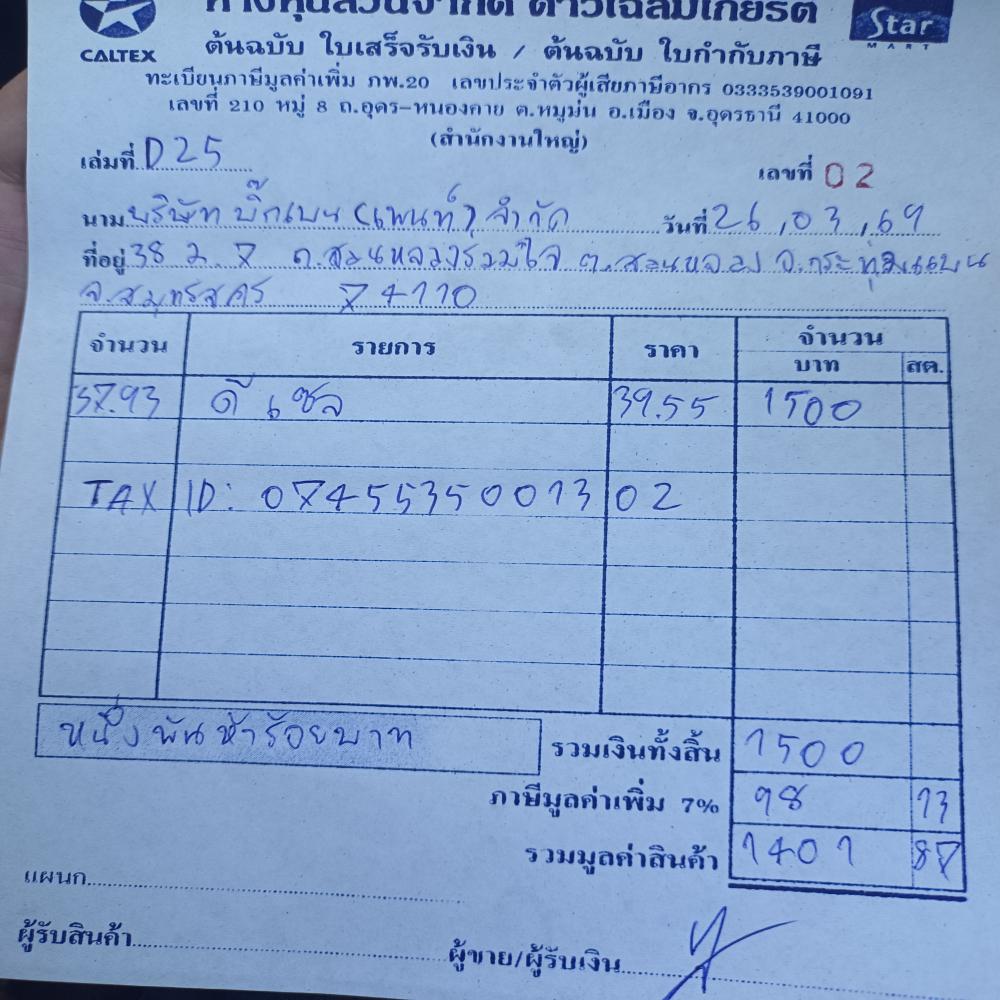 ห้างหุ้นส่วนจำกัด ดาวเฉลิมเกียรติ
CALTEX
Star
MART
ต้นฉบับ ใบเสร็จรับเงิน / ต้นฉบับ ใบกำกับภาษี
ทะเบียนภาษีมูลค่าเพิ่ม ภพ.20 เลขประจำตัวผู้เสียภาษีอากร 0333539001091
เลขที่ 210 หมู่ 8 ถ.อุดร-หนองคาย ต.หมูม่น อ.เมือง จ.อุดรธานี 41000
(สำนักงานใหญ่)
เล่มที่ D25 เลขที่ 02
นาม บริษัท บิ๊กเบน (เพนท์) จำกัด วันที่ 26,03,69
ที่อยู่ 38 ม.7 ถ.สวนหลวงร่วมใจ ต.สวนหลวง อ.กระทุ่มแบน
จ.สมุทรสาคร 74110
จำนวน รายการ ราคา จำนวน
บาท สต.
37.93 ดีเซล 39.55 1500
TAX ID: 0745535001302
หนึ่งพันห้าร้อยบาท รวมเงินทั้งสิ้น 1500
ภาษีมูลค่าเพิ่ม 7% 98 13
รวมมูลค่าสินค้า 1401 87
แผนก
ผู้รับสินค้า ผู้ขาย/ผู้รับเงิน